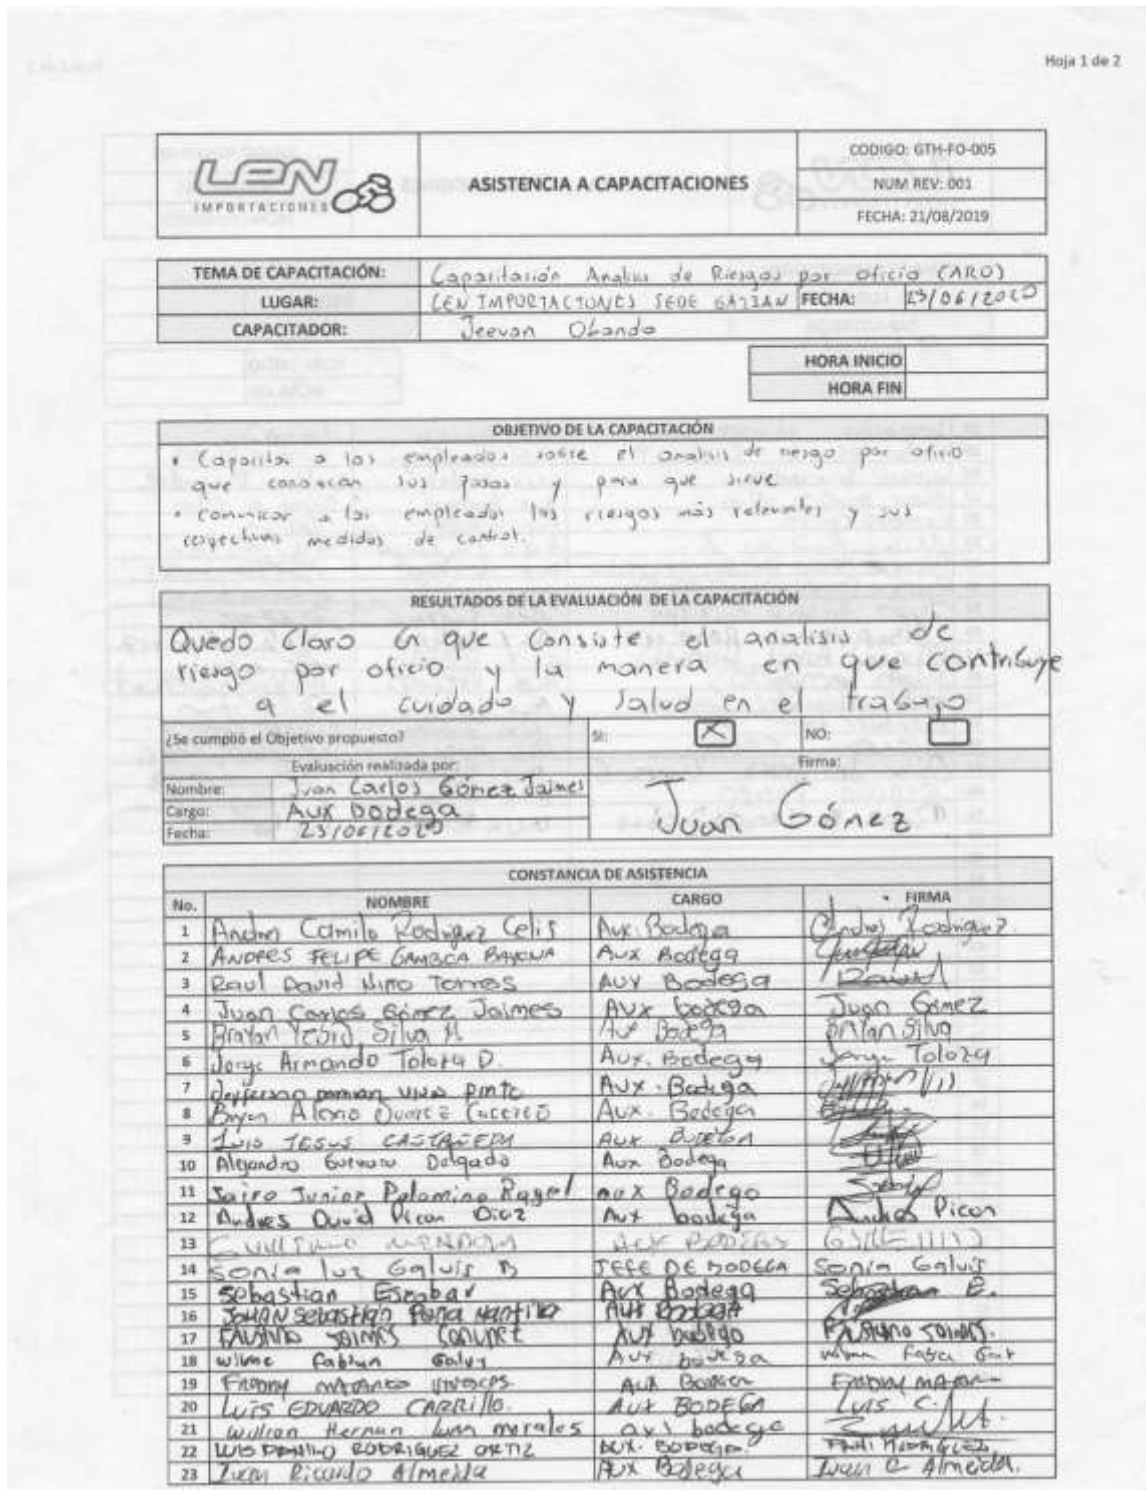 Hoja 1 de 2
LEN
IMPORTACIONES
ASISTENCIA A CAPACITACIONES
CODIGO: GTH-FO-005
NUM REV: 001
FECHA: 21/08/2019
TEMA DE CAPACITACIÓN: Capacitación Analisis de Riesgos por oficio (ARO)
LUGAR: LEN IMPORTACIONES SEDE GAITAN FECHA: 23/06/2020
CAPACITADOR: Jeevan Obando
HORA INICIO
HORA FIN
OBJETIVO DE LA CAPACITACIÓN
• Capacitar a los empleados sobre el analisis de riesgo por oficio
que conozcan sus pasos y para que sirve
• comunicar a los empleados los riesgos más relevantes y sus
respectivas medidas de control.
RESULTADOS DE LA EVALUACIÓN DE LA CAPACITACIÓN
Quedo Claro en que Consiste el analisis de
riesgo por oficio y la manera en que contribuye
a el cuidado y salud en el trabajo
¿Se cumplió el Objetivo propuesto? SI: X NO:
Evaluación realizada por: Firma:
Nombre: Juan Carlos Gómez Jaimes
Cargo: Aux bodega
Fecha: 23/06/2020
Juan Gómez
CONSTANCIA DE ASISTENCIA
No. NOMBRE CARGO FIRMA
1 Andres Camilo Rodriguez Celis Aux. Bodega Andres Rodriguez
2 ANDRES FELIPE GAMBOA BAYONA Aux Bodega
3 Raul David Nino Torres AUX Bodega
4 Juan Carlos Gómez Jaimes AUX bodega Juan Gomez
5 Brayan Yesid Silva M Aux Bodega Brayan Silva
6 Jorge Armando Toloza D. Aux. Bodega Jorge Toloza
7 Jefferson vivas Pinto Aux. Bodega
8 Bryan Aux. Bodega
9 Luis JESUS CASTAÑEDA Aux BODEGA
10 Alejandro Guevara Delgado Aux Bodega
11 Jairo Junior Palomino Rangel aux Bodega
12 Andres David Picon Diaz Aux bodega Andres Picon
13 AUX BODEGA
14 Sonia luz Galvis JEFE DE BODEGA Sonia Galvis
15 Sebastian Escobar Aux Bodega Sebastian E.
16 JOHAN Sebastian Peña Mantilla Aux Bodega
17 FAUSTINO JAIMES Aux bodega FAUSTINO JAIMES.
18 wilme Fabian Galvis Aux bodega
19 FREDDY Aux Bodega FREDDY
20 LUIS EDUARDO CARRILLO. AUX BODEGA LUIS C.
21 Hernan morales aux bodega
22 LUIS RODRIGUEZ ORTIZ AUX. BODEGA.
23 Ivan Ricardo Almeida Aux Bodega Ivan Almeida.